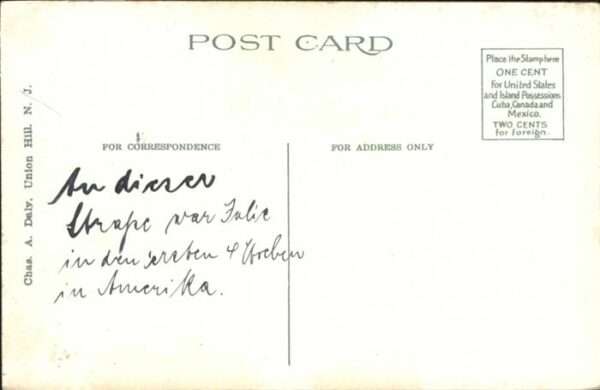 POST CARD
Place the Stamp here
ONE CENT
For United States
and Island Possessions
Cuba, Canada and
Mexico.
TWO CENTS
for foreign.
FOR CORRESPONDENCE
FOR ADDRESS ONLY
Chas. A. Daly, Union Hill, N. J.
An dieser
Straße war
in den ersten 4 Wochen
in Amerika.